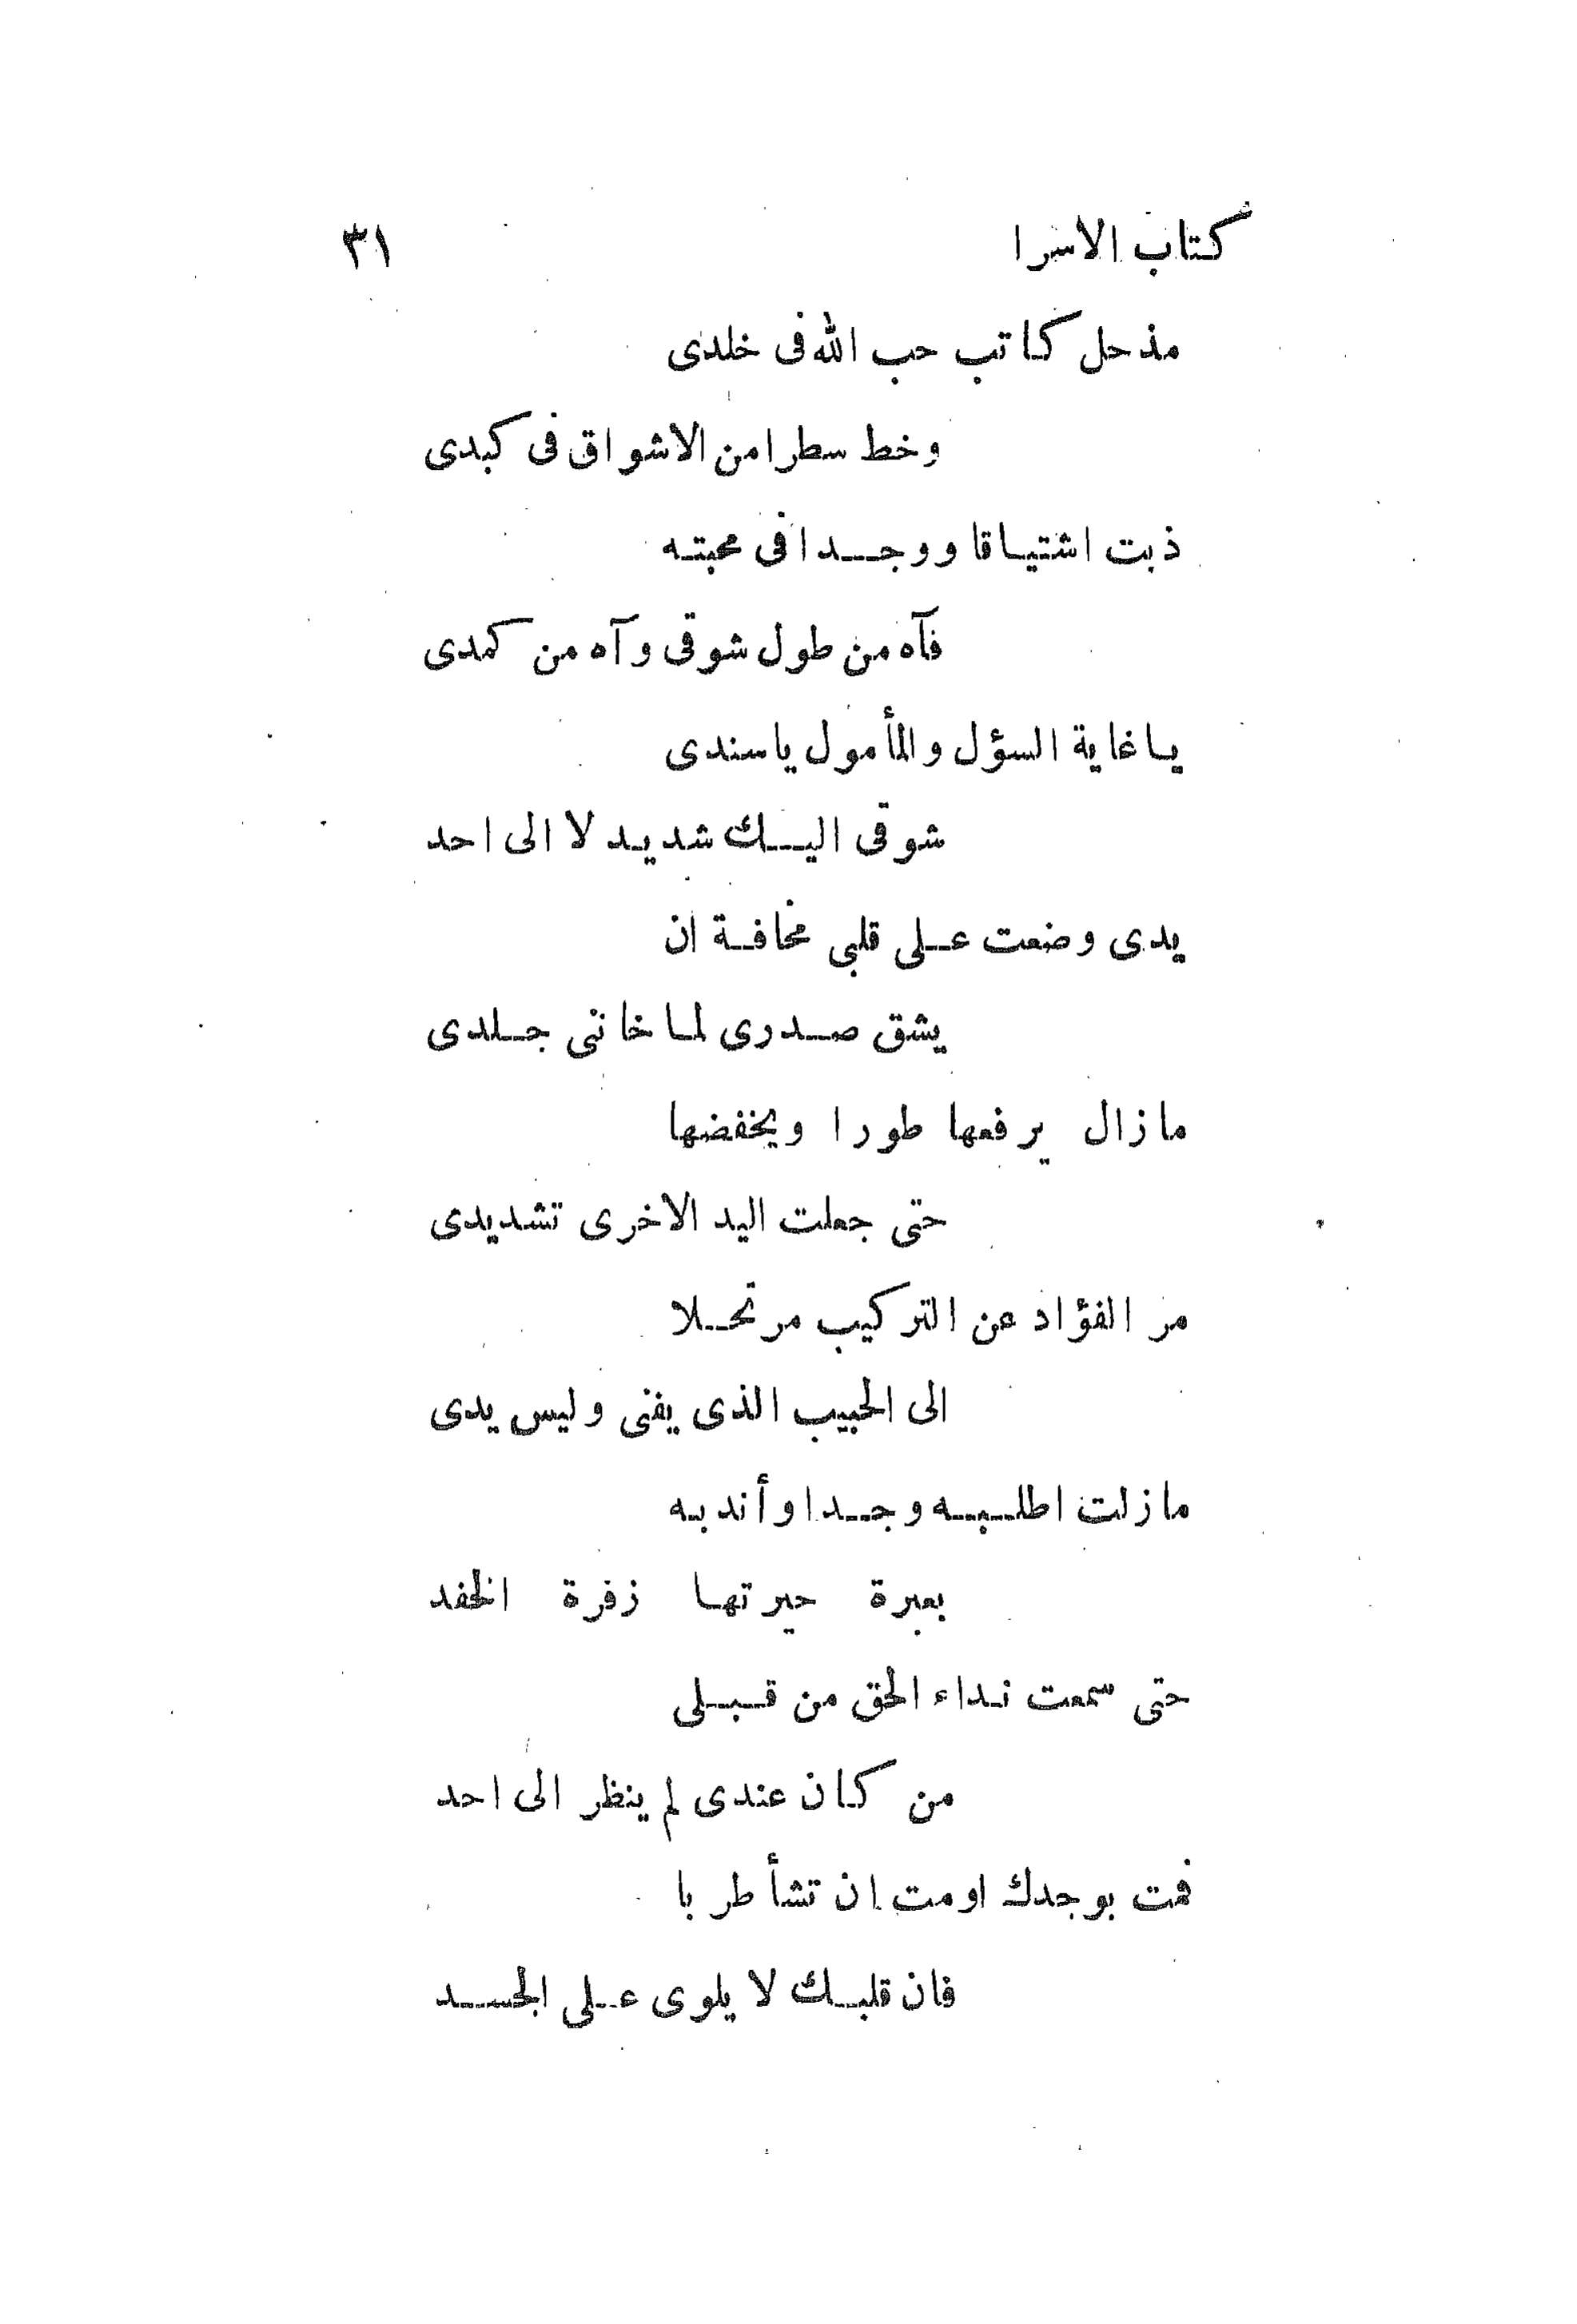 كتاب الاسرا ٣١
مذحل كاتب حب الله فى خلدى
وخط سطرا من الاشواق فى كبدى
ذبت اشتياقا ووجدا فى محبته
فآه من طول شوقى وآه من كمدى
يا غاية السؤل والمأمول ياسندى
شوقى اليك شديد لا الى احد
يدى وضعت على قلبى مخافة ان
يشق صدرى لما خاننى جلدى
مازال يرفعها طورا ويخفضها
حتى جعلت اليد الاخرى تشديدى
مر الفؤاد عن التركيب مرتحلا
الى الحبيب الذى يفنى وليس يدى
مازلت اطلبه وجدا وأندبه
بعبرة حيرتها زفرة الخفد
حتى سمعت نداء الحق من قبلى
من كان عندى لم ينظر الى احد
فمت بوجدك اومت ان تشأ طربا
فان قلبك لا يلوى على الجسد